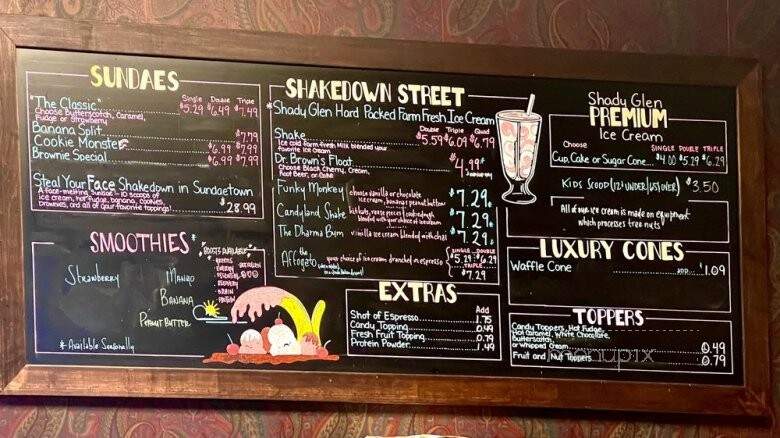 SUNDAES
Single Double Triple
"The Classic" $5.29 $6.49 $7.49
Choose Butterscotch, Caramel,
Fudge or Strawberry
Banana Split $7.79
Cookie Monster $6.99 $7.99
Brownie Special $6.99 $7.99
Steal Your Face Shakedown in Sundaetown
A face-melting sundae - 10 scoops of
ice cream, hot fudge, banana, cookies,
brownies, and all of your favorite toppings! $28.99
SMOOTHIES*
Boosts Available
Strawberry
Mango
Banana
Peanut Butter
Greens
Energy
Protein
* Available Seasonally
SHAKEDOWN STREET
*Shady Glen Hard Packed Farm Fresh Ice Cream
Double Triple Quad
Shake $5.59 $6.09 $6.79
Ice cold farm fresh Milk blended your
favorite Ice Cream
Dr. Brown's Float $4.99
Choose Black Cherry, Cream,
Root Beer, or Coke
Funky Monkey choose vanilla or chocolate $7.29
ice cream, banana, peanut butter
Candyland Shake $7.29
blended with your choice of ice cream
The Dharma Bum vanilla ice cream blended with chai $7.29
SINGLE DOUBLE
The Affogato your choice of ice cream drenched in espresso $5.29 $6.29
TRIPLE
$7.29
EXTRAS
Add
Shot of Espresso 1.75
Candy Topping 0.49
Fresh Fruit Topping 0.79
Protein Powder 1.49
Shady Glen
PREMIUM
Ice Cream
Choose SINGLE DOUBLE TRIPLE
Cup, Cake or Sugar Cone $4.00 $5.29 $6.29
KIDS SCOOP (12 UNDER/65 OVER) $3.50
All of our ice cream is made on equipment
which processes tree nuts
LUXURY CONES
Waffle Cone ADD $1.09
TOPPERS
Candy Toppers, Hot Fudge,
Hot Caramel, White Chocolate,
Butterscotch,
or Whipped Cream 0.49
Fruit and Nut Toppers 0.79